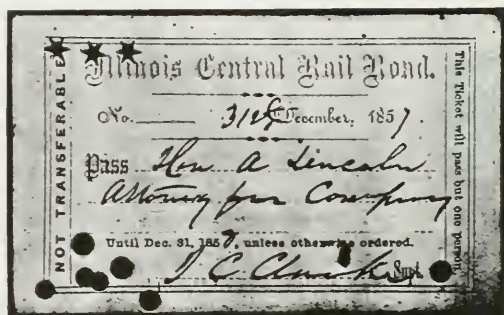 NOT TRANSFERABLE
Illinois Central Rail Road.
No. 31st December, 1857
Pass Hon A Lincoln
Attorney for Company
Until Dec. 31, 1858, unless otherwise ordered.
Supt.
This Ticket will pass but one person.